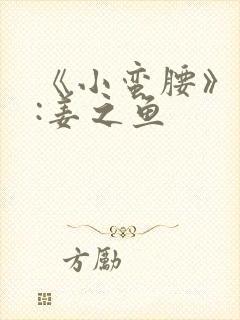 《小蛮腰》
:姜之鱼
方励